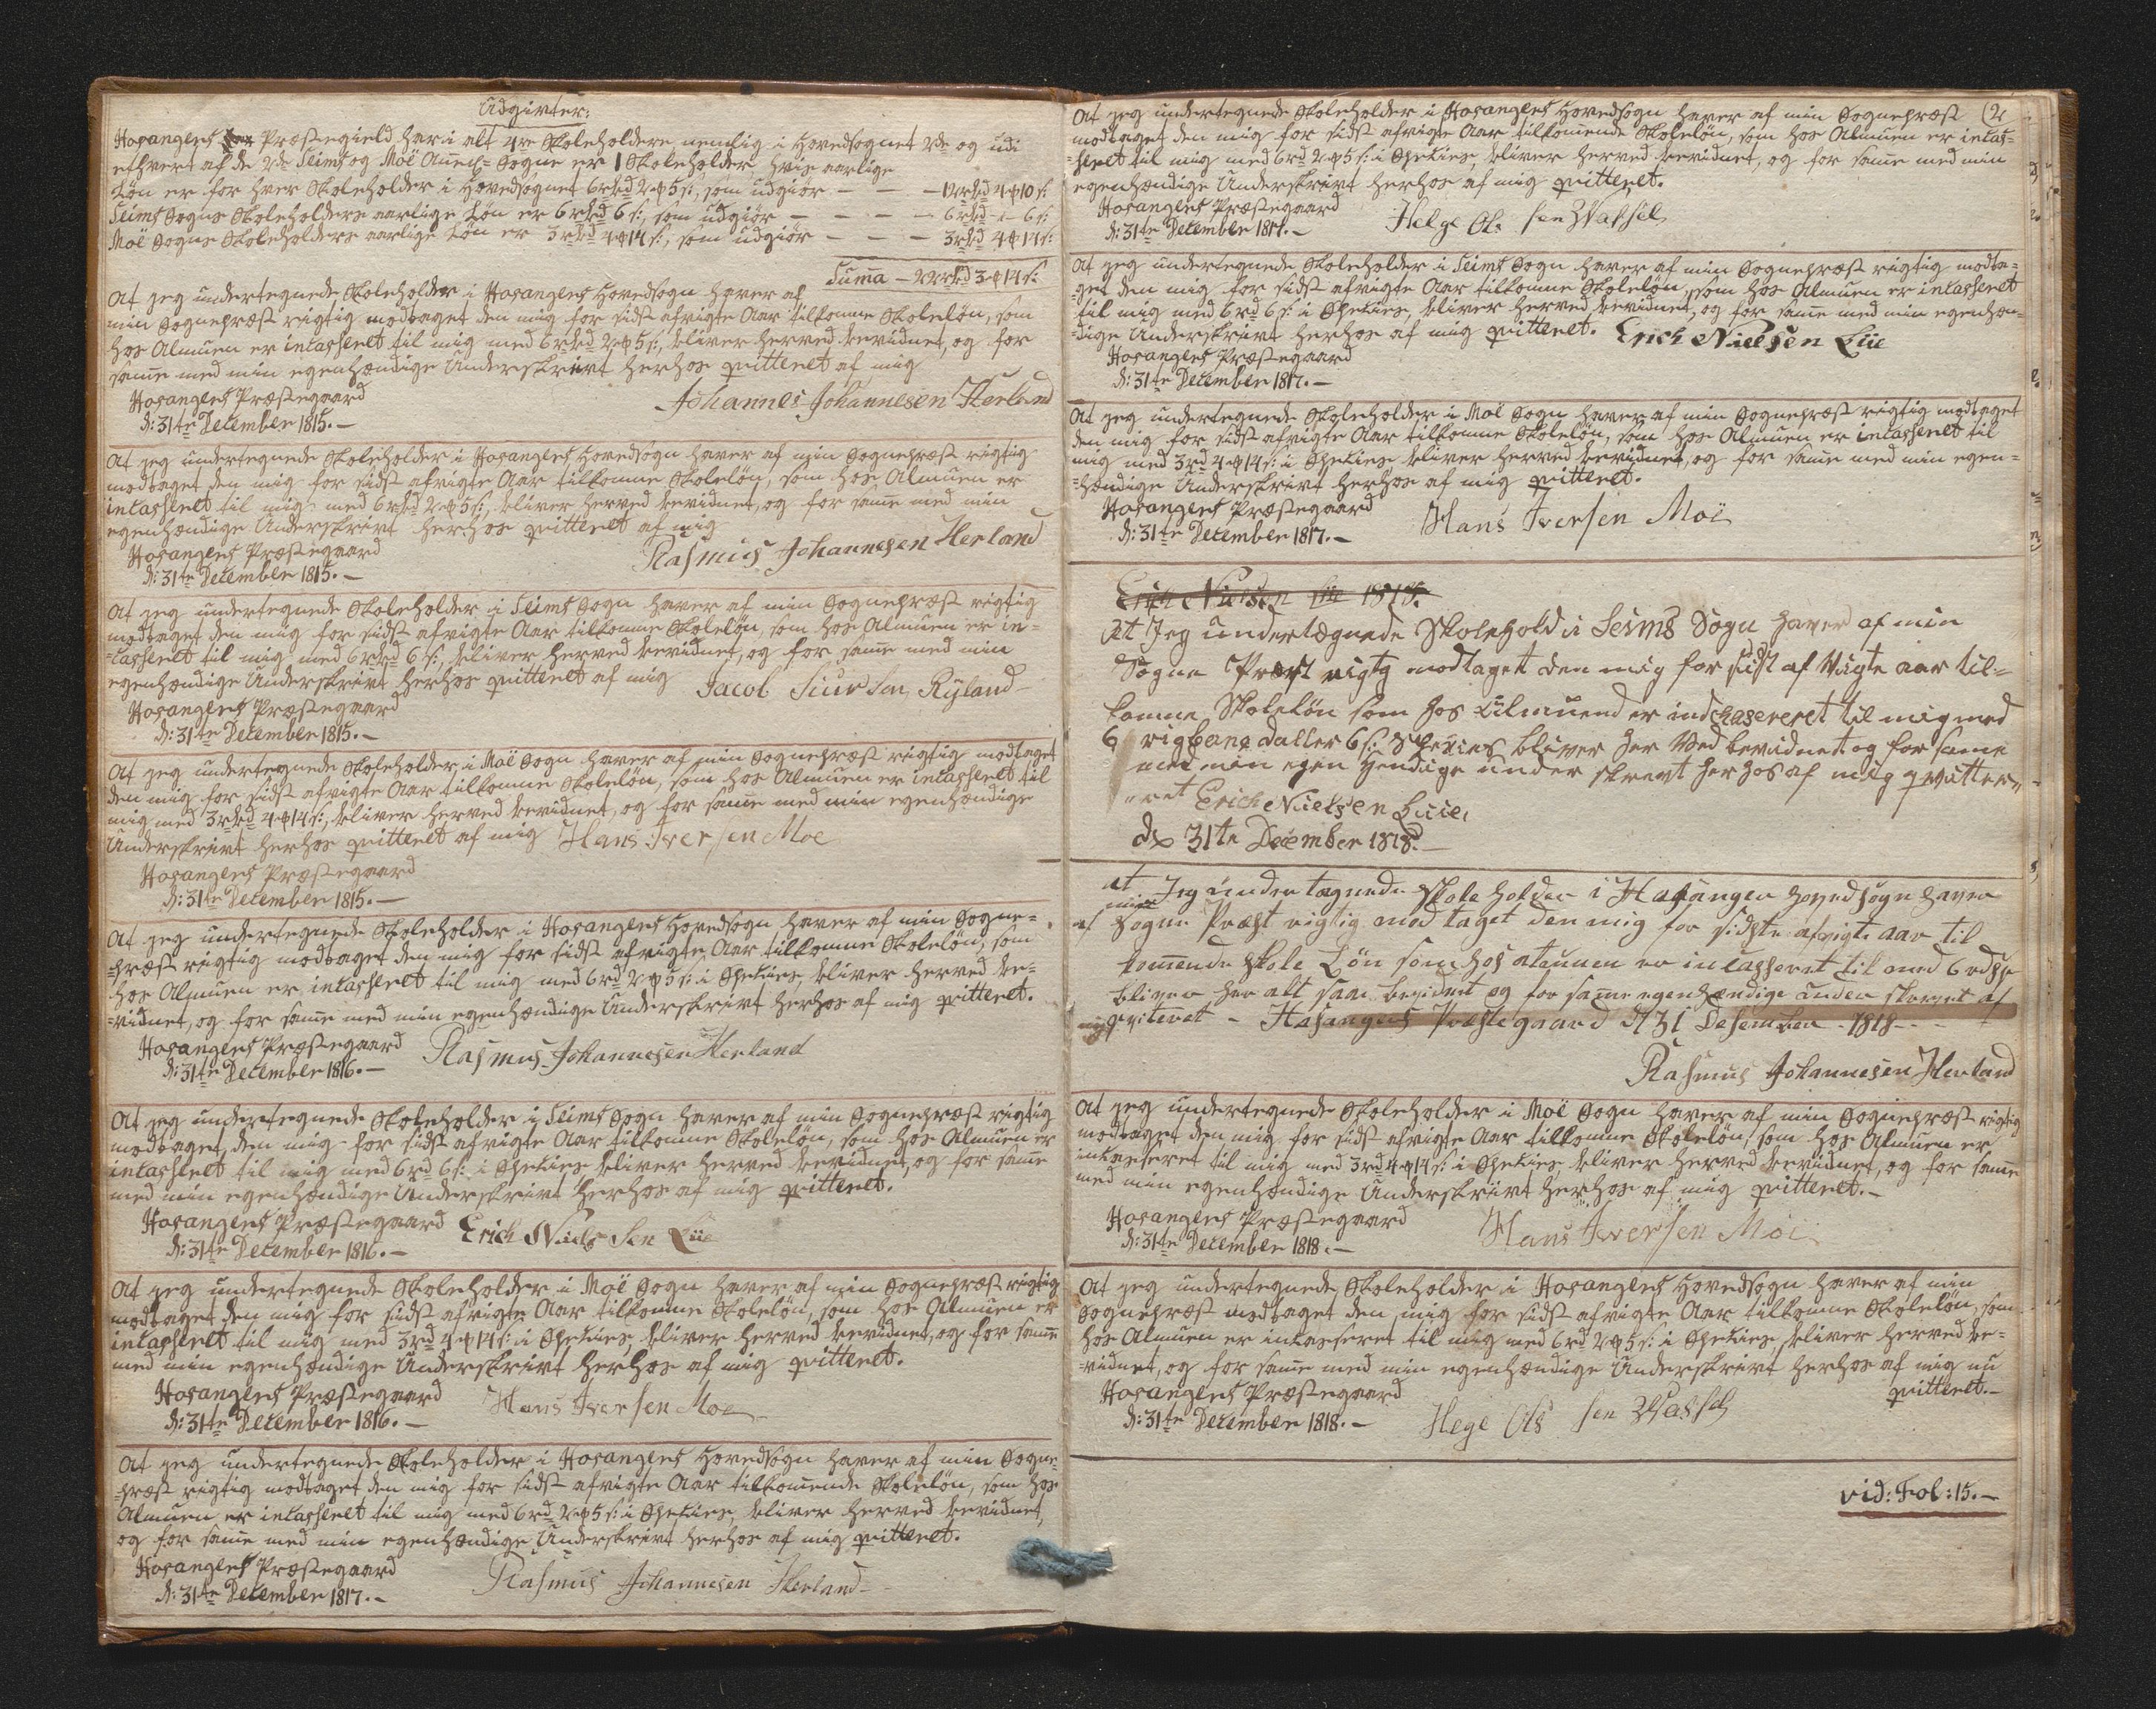 Udgivter:
Hosangers Præstegield har i alt 4re Skoleholdere, nemlig i Hovedsognet 2de og udi
ethvert af de 2de Seims og Moë Annex-Sogne er 1 Skoleholder, hvis aarlige
Løn er for hver Skoleholder i Hovedsognet 6rbd 2 ȸ 5 s:, som udgiör — — — 12rbd 4 ȸ 10 s:
Seims Sogns Skoleholders aarlige Løn er 6 rbd 6 s:, som udgiör — — — — 6 rbd - " - 6 s:
Moë Sogns Skoleholders aarlige Løn er 3 rbd 4 ȸ 14 s:, som udgiör — — — 3rbd 4 ȸ 14 s:
Suma — 22rbd 3 ȸ 14 s:
At jeg undertegnede Skoleholder i Hosangers Hovedsogn haver af
min Sognepræst rigtig modtaget den mig for sidst afvigte Aar tilkomne Skoleløn, som
hos Almuen er incasseret til mig med 6 rbd 2 ȸ 5 s:, bliver herved bevidnet, og for
same med min egenhændige Underskrivt herhos qvitteret af mig
Hosangers Præstegaard
d: 31te December 1815. —
Johannes Johannesen Herland
At jeg undertegnede Skoleholder i Hosangers Hovedsogn haver af min Sognepræst rigtig
modtaget den mig for sidst afvigte Aar tilkomne Skoleløn, som hos Almuen er
incasseret til mig med 6 rbd 2 ȸ 5 s:, bliver herved bevidnet, og for same med min
egenhændige Underskrivt herhos qvitteret af mig
Hosangers Præstegaard
d: 31te December 1815. —
Rasmus Johannesen Herland
At jeg undertegnede Skoleholder i Seims Sogn haver af min Sognepræst rigtig
modtaget den mig for sidst afvigte Aar tilkomne Skoleløn, som hos Almuen er in-
=casseret til mig med 6 rbd 6 s:, bliver herved bevidnet, og for same med min
egenhændige Underskrivt herhos qvitteret af mig
Jacob Siursen Ryland
Hosangers Præstegaard
d: 31te December 1815. —
At jeg undertegnede Skoleholder i Moë Sogn haver af min Sognepræst rigtig modtaget
den mig for sidst afvigte Aar tilkomne Skoleløn, som hos Almuen er incasseret til
mig med 3 rbd 4 ȸ 14 s:, bliver herved bevidnet, og for same med min egenhændige
Underskrivt herhos qvitteret af mig Hans Iversen Moe
Hosangers Præstegaard
d: 31te December 1815. —
At jeg undertegnede Skoleholder i Hosangers Hovedsogn haver af min Sogne-
=præst rigtig modtaget den mig for sidst afvigte Aar tilkomne Skoleløn, som
hos Almuen er incasseret til mig med 6 rd 2 ȸ 5 s: i Specier, bliver herved be-
=vidnet, og for same med min egenhændige Underskrivt herhos af mig qvitteret.
Hosangers Præstegaard
d: 31te December 1816. —
Rasmus Johannesen Herland
At jeg undertegnede Skoleholder i Seims Sogn haver af min Sognepræst rigtig
modtaget den mig for sidst afvigte Aar tilkomne Skoleløn, som hos Almuen er
incasseret til mig med 6 rd 6 s: i Specier, bliver herved bevidnet, og for same
med min egenhændige Underskrivt herhos af mig qvitteret.
Hosangers Præstegaard
d: 31te December 1816. —
Erich Niels Sen Liie
At jeg undertegnede Skoleholder i Moë Sogn haver af min Sognepræst rigtig
modtaget den mig for sidst afvigte Aar tilkomne Skoleløn, som hos Almuen er
incasseret til mig med 3 rd 4 ȸ 14 s: i Specier, bliver herved bevidnet, og for same
med min egenhændige Underskrivt herhos af mig qvitteret.
Hosangers Præstegaard
d: 31te December 1816. —
Hans Iversen Moe
At jeg undertegnede Skoleholder i Hosangers Hovedsogn haver af min Sogne-
=præst rigtig modtaget den mig for sidst afvigte Aar tilkommende Skoleløn, som hos
Almuen er incasseret til mig med 6 rd 2 ȸ 5 s: i Specier, bliver herved bevidnet,
og for same med min egenhændige Underskrivt herhos af mig qvitteret.
Hosangers Præstegaard
d: 31te December 1817. —
Rasmus Johannesen Herland
(2
At jeg undertegnede Skoleholder i Hosangers Hovedsogn haver af min Sognepræst
modtaget den mig for sidst afvigte Aar tilkommende Skoleløn, som hos Almuen er incas-
=seret til mig med 6 rd 2 ȸ 5 s: i Specier, bliver herved bevidnet, og for same med min
egenhændige Underskrivt herhos af mig qvitteret.
Hosangers Præstegaard
d: 31te December 1817. —
Helge Ols sen Wassel
At jeg undertegnede Skoleholder i Seims Sogn haver af min Sognepræst rigtig modta-
=get den mig for sidst afvigte Aar tilkomne Skoleløn, som hos Almuen er incasseret
til mig med 6 rd 6 s: i Specier, bliver herved bevidnet, og for same med min egenhæn-
=dige Underskrivt herhos af mig qvitteret. Erich Nielsen Liie
Hosangers Præstegaard
d: 31te December 1817. —
At jeg undertegnede Skoleholder i Moë Sogn haver af min Sognepræst rigtig modtaget
den mig for sidst afvigte Aar tilkomne Skoleløn, som hos Almuen er incasseret til
mig med 3 rd 4 ȸ 14 s: i Specier bliver herved bevidnet, og for same med min egen-
=hændige Underskrivt herhos af mig qvitteret.
Hosangers Præstegaard
d: 31te December 1817. —
Hans Iversen Moë
Erich Nielsen Liie 1818.
At Jeg undertægnede Skolehold i Seims Sogn haver af min
Sogne Præst rigtg modtaget den mig for sidst af Vigte aar til-
komne Skoleløn som hos Allmuend er indchasereret til mig med
6 rigbane daller 6 s: Spexies bliver her Ved bevidnet og for same
med min egen hendige under skrevt her hos af mig qvitter,,
,,ret Erich Nielsen Liiie,
d 31te December 1818. —
at Jeg undertægnede Skole holder i Hasanger hovedsogn haver
af min Sogne Præst rigtig mod taget den mig for sidste afvigte aar til
komende skole Løn som hos almuen er incasseret til med 6 rd
bliver her alt saa bevidnet og for same egenhændige under skrevet af
mig qviteret - Hasangers Præstegaard d 31 Desember 1818 - -
Rasmus Johannesen Herland
At jeg undertegnede Skoleholder i Moë Sogn haver af min Sognepræst rigtig
modtaget den mig for sidst afvigte Aar tilkomne Skoleløn, som hos Almuen er
incasseret til mig med 3 rd 4 ȸ 14 s: i Specier bliver herved bevidnet, og for same
med min egenhændige Underskrivt herhos af mig qvitteret. —
Hosangers Præstegaard
d: 31te December 1818. —
Hans Iversen Moë
At jeg undertegnede Skoleholder i Hosangers Hovedsogn haver af min
Sognepræst modtaget den mig for sidst afvigte Aar tilkomne Skoleløn, som
hos Almuen er incasseret til mig med 6 rd 2 ȸ 5 s: i Specier, bliver herved be-
=vidnet, og for same med min egenhændige Underskrivt herhos af mig nu
qvitteret. —
Hosangers Præstegaard
d: 31te December 1818. —
Hege Ols sen Wassel
vid: Fol: 15. —